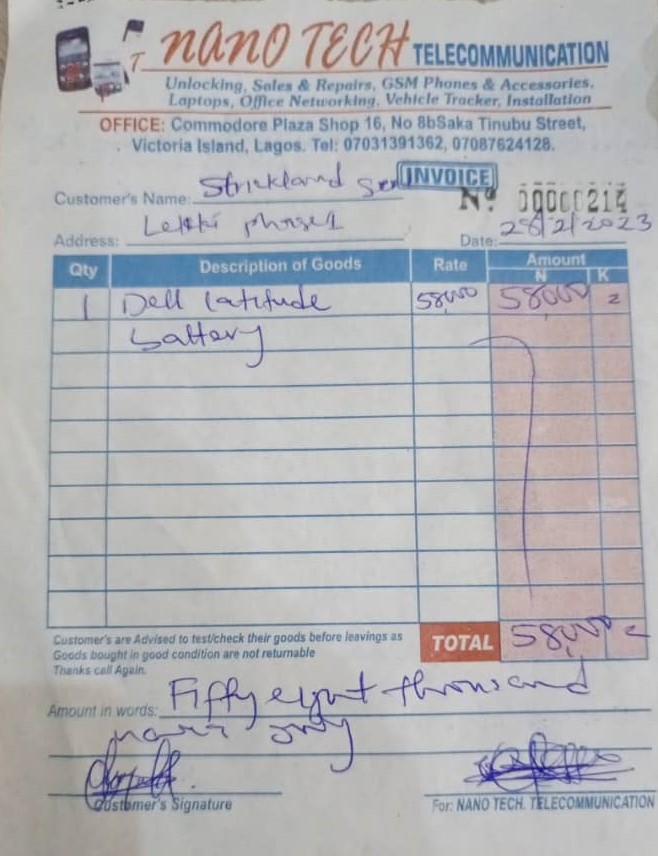 NANO TECH TELECOMMUNICATION
Unlocking, Sales & Repairs, GSM Phones & Accessories,
Laptops, Office Networking, Vehicle Tracker, Installation
OFFICE: Commodore Plaza Shop 16, No 8bSaka Tinubu Street,
Victoria Island, Lagos. Tel: 07031391362, 07087624128.
INVOICE
Customer's Name: Strickland
Nº 00000214
Address: Lekki phase 1
Date: 28/2/2023
Qty Description of Goods Rate Amount
N K
1 Dell latitude 58,000 58,000
battery
Customer's are Advised to test/check their goods before leavings as
Goods bought in good condition are not returnable
Thanks call Again.
TOTAL 58,000
Amount in words: Fifty eight thousand
naira only
Customer's Signature
For: NANO TECH. TELECOMMUNICATION